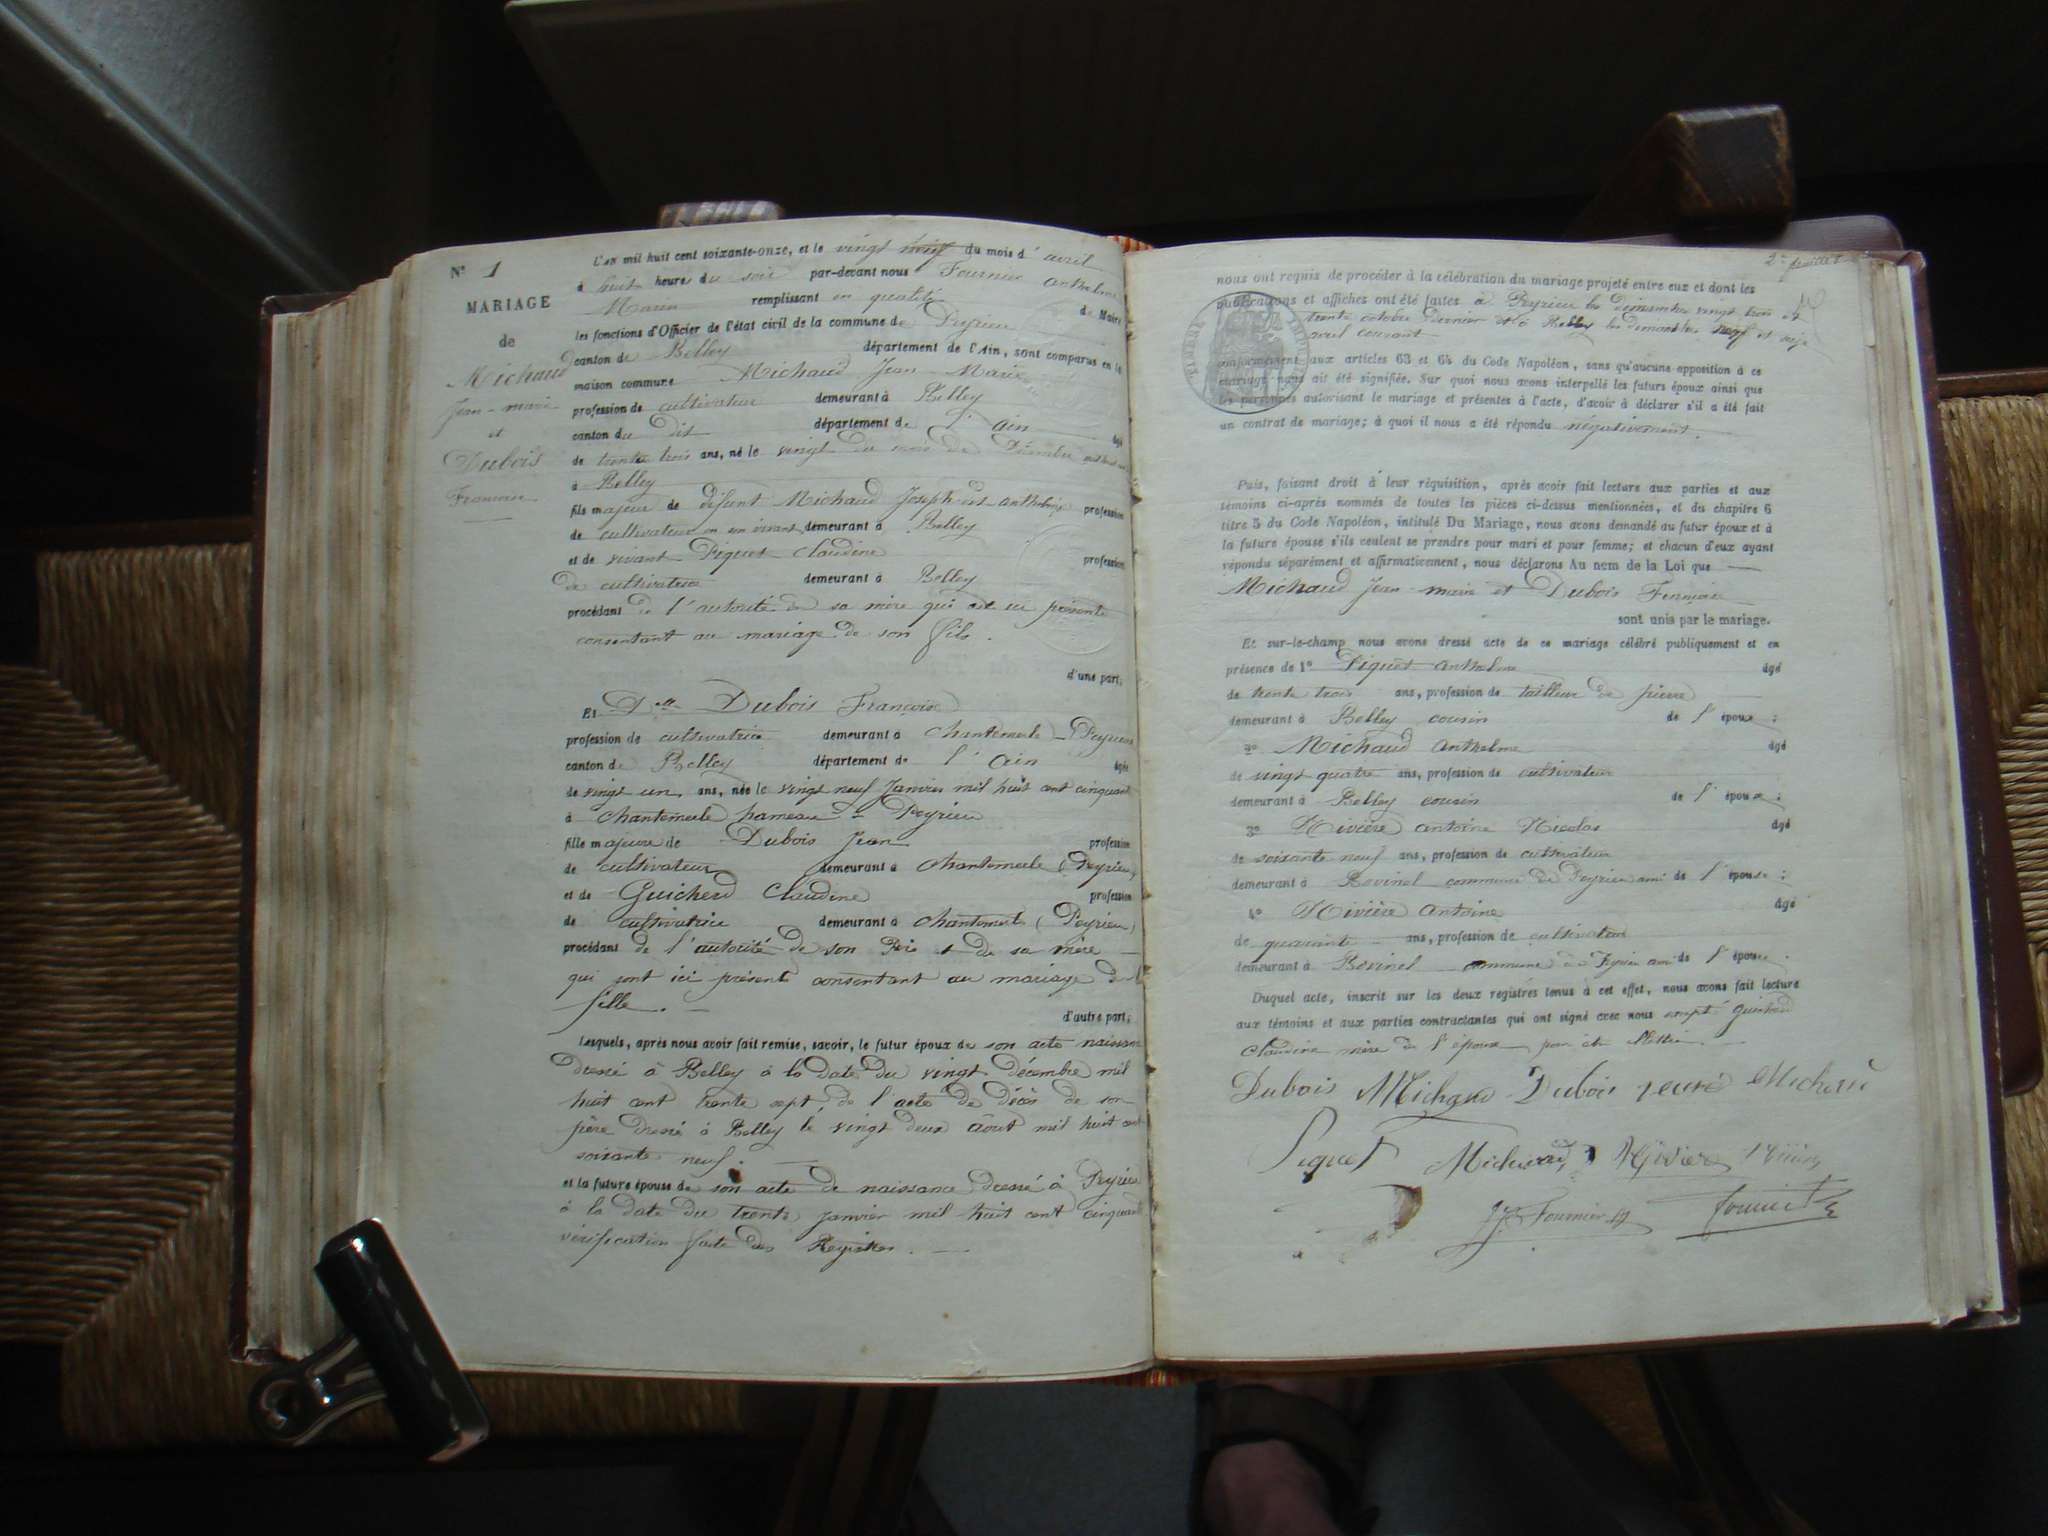 N° 1
MARIAGE
de
Michaud
Jean-marie
et
Dubois
Françoise
L'an mil huit cent soixante-onze, et le vingt neuf du mois d'avril
à huit heures du soir par-devant nous Fournier Anthelme
Marin remplissant en qualité de Maire
les fonctions d'Officier de l'état civil de la commune de Peyrieu
canton de Belley département de l'Ain, sont comparus en la
maison commune Michaud Jean Marie
profession de cultivateur demeurant à Belley
canton du dit département de l'ain âgé
de trente trois ans, né le vingt du mois de Décembre
à Belley
fils majeur de défunt Michaud Joseph dit anthelme profession
de cultivateur en son vivant demeurant à Belley
et de vivant Piquet Claudine profession
de cultivatrice demeurant à Belley
procédant de l'autorité de sa mère qui est ici présente
consentant au mariage de son fils.
d'une part;
Et Dlle Dubois Françoise
profession de cultivatrice demeurant à chantemerle Peyrieu
canton de Belley département de l'ain âgée
de vingt un ans, née le vingt neuf Janvier mil huit cent cinquante
à chantemerle hameau de Peyrieu
fille majeure de Dubois Jean profession
de cultivateur demeurant à chantemerle (Peyrieu)
et de Guicherd Claudine profession
de cultivatrice demeurant à chantemerle (Peyrieu)
procédant de l'autorité de son Père et de sa mère
qui sont ici présent consentant au mariage de
fille.
d'autre part;
Lesquels, après nous avoir fait remise, savoir, le futur époux de son acte naissance
Dressé à Belley à la date du vingt décembre mil
huit cent trente sept de l'acte de décès de son
père dressé à Belley le vingt deux août mil huit cent
soixante neuf.
et la future épouse de son acte de naissance dressé à Peyrieu
à la date du trente janvier mil huit cent cinquante
vérification faite des Registres.
2e feuillet
nous ont requis de procéder à la célébration du mariage projeté entre eux et dont les
publications et affiches ont été faites à Peyrieu les dimanches vingt trois et
trente octobre dernier et à Belley les dimanches neuf et seize
avril courant
conformément aux articles 63 et 64 du Code Napoléon, sans qu'aucune opposition à ce
mariage nous ait été signifiée. Sur quoi nous avons interpellé les futurs époux ainsi que
les personnes autorisant le mariage et présentes à l'acte, d'avoir à déclarer s'il a été fait
un contrat de mariage; à quoi il nous a été répondu négativement.
Puis, faisant droit à leur réquisition, après avoir fait lecture aux parties et aux
témoins ci-après nommés de toutes les pièces ci-dessus mentionnées, et du chapitre 6
titre 5 du Code Napoléon, intitulé Du Mariage, nous avons demandé au futur époux et à
la future épouse s'ils veulent se prendre pour mari et pour femme; et chacun d'eux ayant
répondu séparément et affirmativement, nous déclarons Au nom de la Loi que
Michaud Jean-marie et Dubois Françoise
sont unis par le mariage.
Et sur-le-champ nous avons dressé acte de ce mariage célébré publiquement et en
présence de 1° Piquet anthelme âgé
de trente trois ans, profession de tailleur de pierre
demeurant à Belley cousin de l'époux;
2° Michaud anthelme âgé
de vingt quatre ans, profession de cultivateur
demeurant à Belley cousin de l'époux;
3° Rivière antoine Nicolas âgé
de soixante neuf ans, profession de cultivateur
demeurant à Bovinel commune de Peyrieu ami de l'épouse;
4° Rivière Antoine âgé
de quarante ans, profession de cultivateur
demeurant à Bovinel commune de Peyrieu ami de l'épouse
Duquel acte, inscrit sur les deux registres tenus à cet effet, nous avons fait lecture
aux témoins et aux parties contractantes qui ont signé avec nous excepté Guicherd
Claudine mère de l'épouse pour être illettrée.
Dubois Michaud Dubois Michaud
Piquet Michaud Rivière Rivière
Fournier Fournier